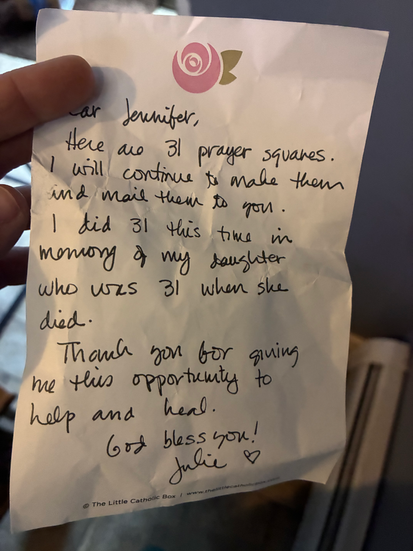 Dear Jennifer,
Here are 31 prayer squares.
I will continue to make them
and mail them to you.
I did 31 this time in
memory of my daughter
who was 31 when she
died.
Thank you for giving
me this opportunity to
help and heal.
God bless you!
Julie ♡
© The Little Catholic Box |